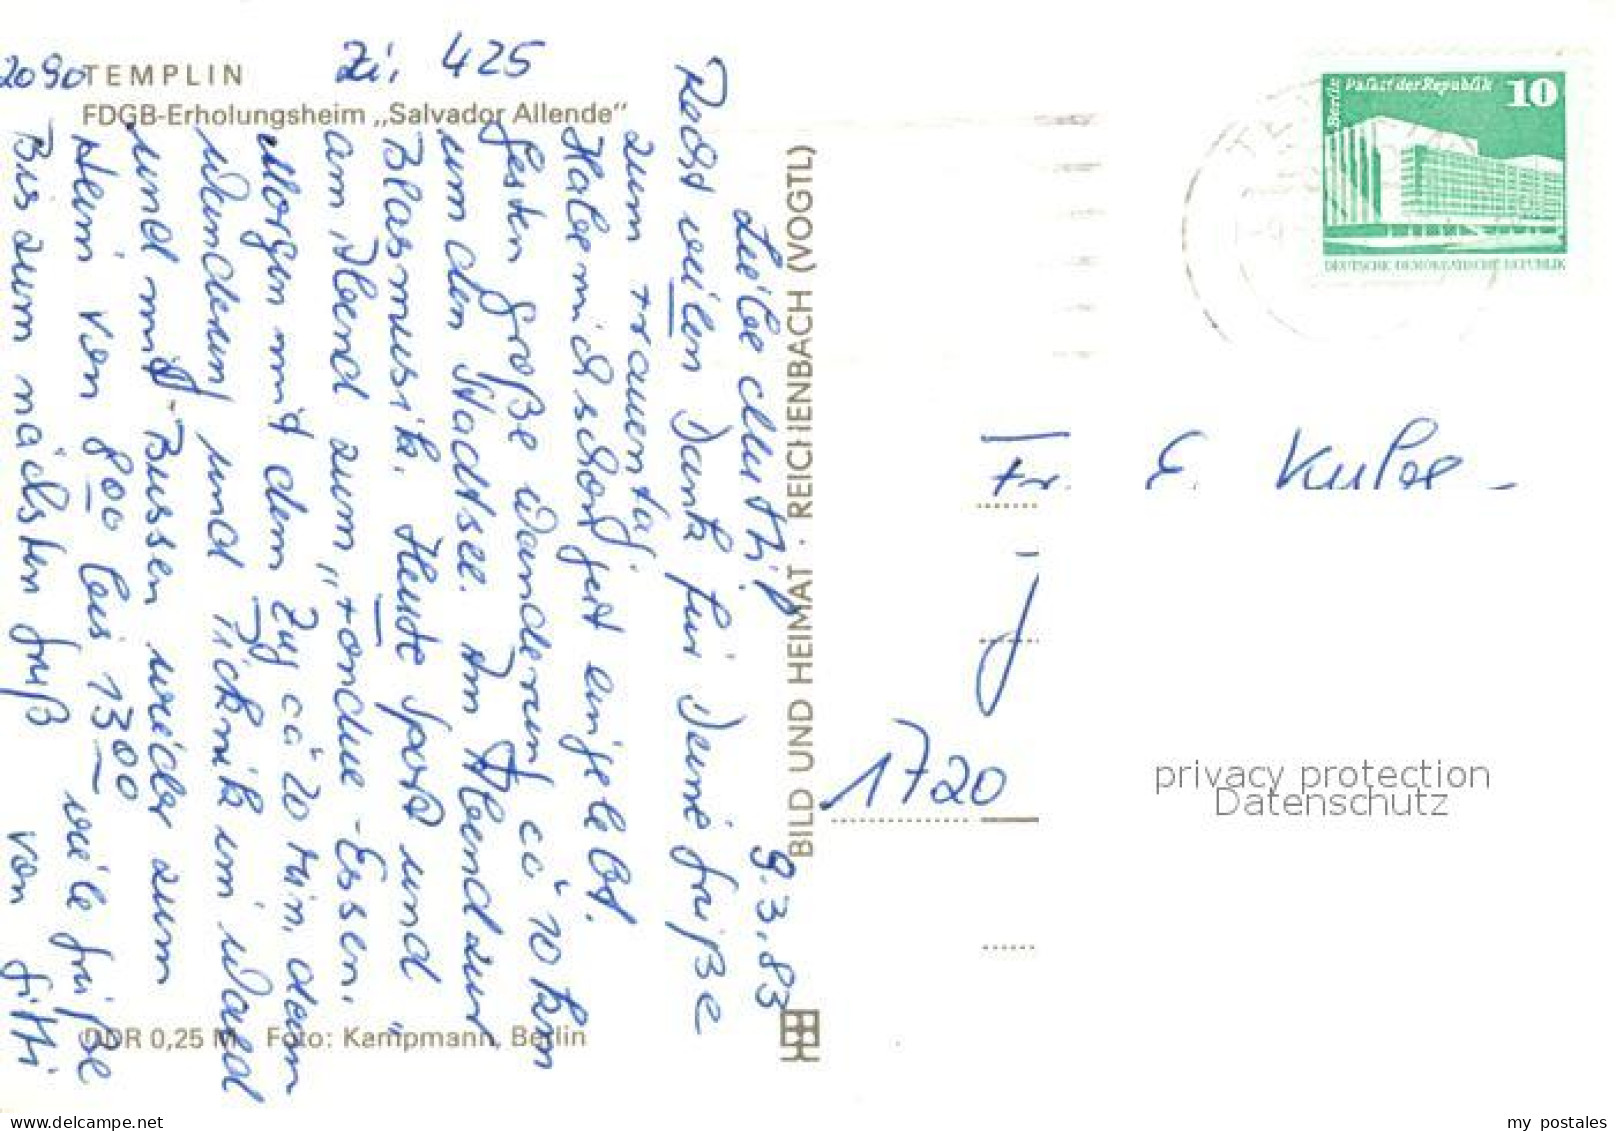 2090 TEMPLIN
Zi. 425
FDGB-Erholungsheim „Salvador Allende“
9.3.83
Liebe Mutti!
Recht vielen Dank für Deine Grüße
zum Frauentag.
Habe mich schon gut eingelebt.
Gestern große Wanderung ca 10 km
um den Stadtsee. Am Abend zur
Blasmusik. Heute Sport und
am Abend zum „Fondue-Essen.“
Morgen mit dem Zug ca 20 Min. dann
Wanderung und Picknik im Wald
und mit Bussen wieder zum
Heim von 8.00 bis 13.00 Viele Grüße
Bis zum nächsten Gruß von
DDR 0,25 M Foto: Kampmann, Berlin
BILD UND HEIMAT · REICHENBACH (VOGTL)
Berlin Palast der Republik 10
DEUTSCHE DEMOKRATISCHE REPUBLIK
Fr. E.
1720
privacy protection
Datenschutz
my postales